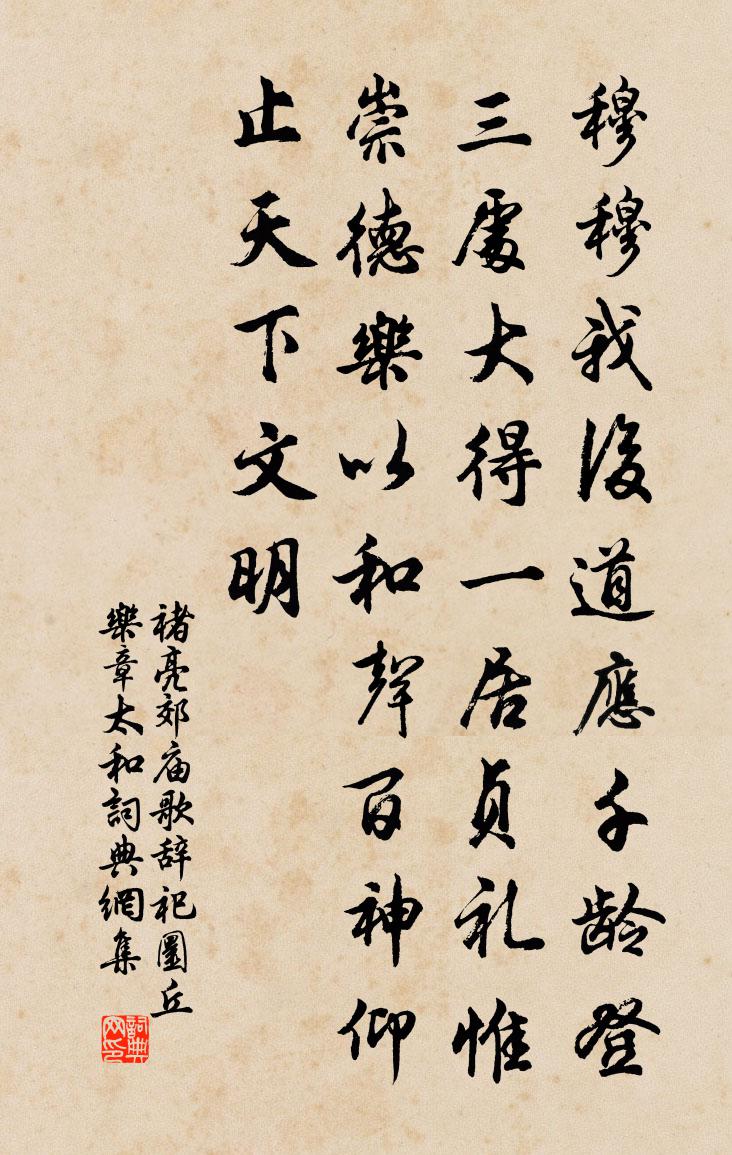 穆穆我後道應千龄登
三處大得一居貞礼惟
崇德樂以和聲百神仰
止天下文明
褚亮郊庙歌辞祀圜丘
樂章太和詞典網集
詞典网印